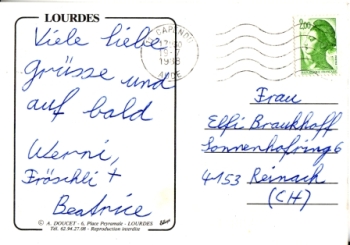 LOURDES
Viele liebe
Grüsse und
auf bald
Werni,
Fröschli +
Beatrice
© A. DOUCET - 6, Place Peyramale - LOURDES
Tél. 62.94.27.08 - Reproduction interdite
CAPENDU
AUDE
2,00
Frau
Elfi Braukhoff
Sonnenhofring 6
4153 Reinach
(CH)